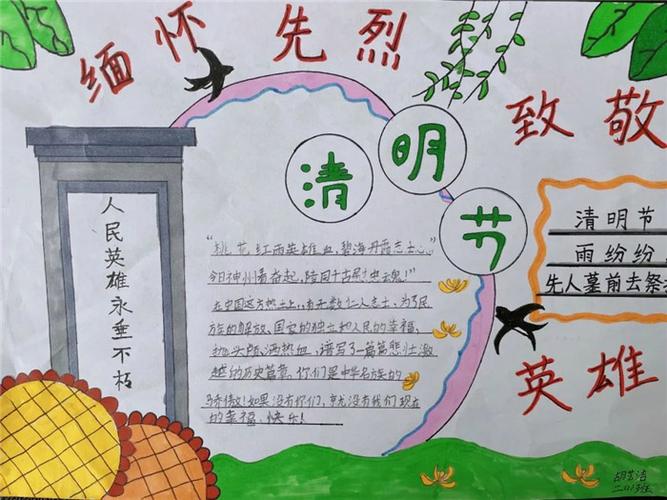 缅怀先烈
致敬
英雄
清明节
人民英雄永垂不朽
"桃花红雨英雄血,碧海丹霞志士心。"
今日神州看奋起,陵园千古慰忠魂!"
在中国这方热土上,有无数仁人志士,为了民
族的解放、国家的独立和人民的幸福,
抛头颅、洒热血,谱写了一篇篇悲壮激
越的历史篇章。你们是中华名族的
骄傲!如果没有你们,就没有我们现在
的幸福、快乐!
清明节
雨纷纷
先人墓前去祭